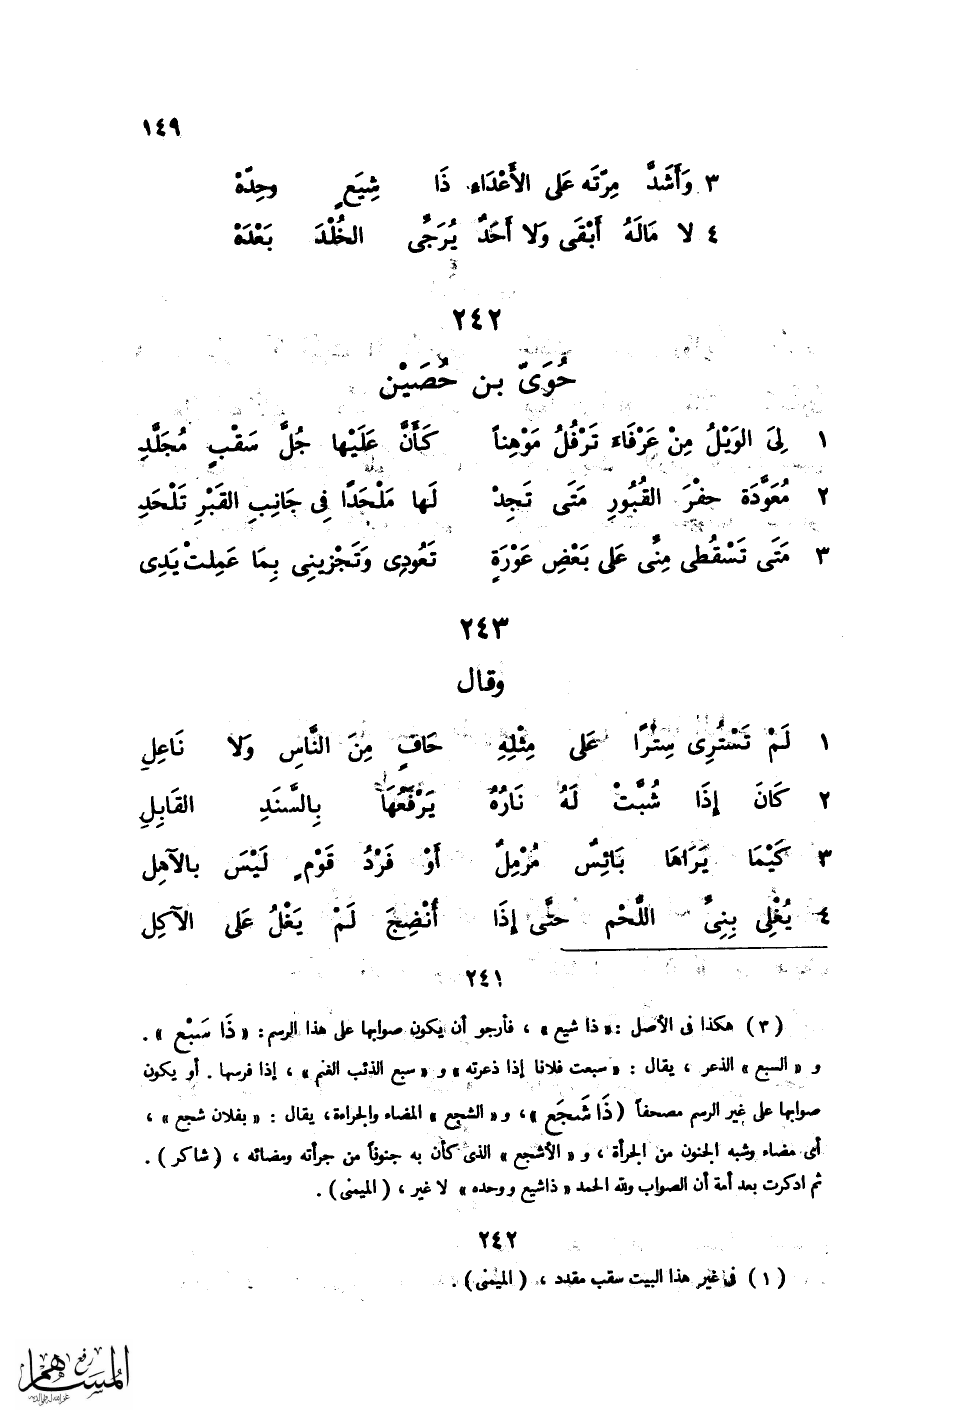 ١٤٩
٣ وَأَشَدَّ مِرّتَه عَلى الأَعْدَاءِ ذَا شِيَعٍ وحِدّهْ
٤ لا مَالَهُ أَبْقَى وَلا أَحَدٌ يُرَجَّى الخُلْدَ بَعْدَهْ
٢٤٢
حُوَىّ بن حُصَيْن
١ لِىَ الوَيْلُ مِنْ عَرْفَاءَ تَرْفُلُ مَوْهِناً كَأَنَّ عَلَيْها جُلَّ سَقْبٍ مُجَلَّدِ
٢ مُعَوَّدَة حفْرَ القُبُورِ مَتَى تَجِدْ لَها مَلْحَدًا فِى جَانِبِ القَبْرِ تَلْحَدِ
٣ مَتَى تَسْقُطى مِنِّى عَلى بَعْضِ عَوْرَةٍ تَعُودِى وَتَجْزِينِى بِمَا عَمِلتْ يَدِى
٢٤٣
وقال
١ لَمْ تَسْتُرِى سِتْرًا عَلى مِثْلِهِ حَافٍ مِنَ النَّاسِ وَلا نَاعِلِ
٢ كَانَ إِذَا شُبَّتْ لَهُ نَارُهُ يَرْفَعُهَا بِالسَّنَدِ القَابِلِ
٣ كَيْمَا يَرَاهَا بَائِسٌ مُرْمِلٌ أَوْ فَرْدُ قَوْمٍ لَيْسَ بالآهِلِ
٤ يُغْلِى بِنِىِّ اللَّحْمِ حتَّى إِذَا أُنْضِجَ لَمْ يَغْلُ عَلى الآكِلِ
٢٤١
(٣) هكذا فى الأصل : « ذا شيع » ، فأرجو أن يكون صوابها على هذا الرسم : « ذَا سَبْعٍ » .
و « السبع » الذعر ، يقال : « سبعت فلانا إذا ذعرته » و « سبع الذئب الغنم » ، إذا فرسها . أو يكون
صوابها على غير الرسم مصحفاً (ذَا شَجَعٍ » ، و « الشجع » المضاء والجراءة ، يقال : « بفلان شجع » ،
أى مضاء وشبه الجنون من الجرأة ، و « الأشجع » الذى كأن به جنوناً من جرأته ومضائه ، (شاكر) .
ثم ادكرت بعد أمة أن الصواب ولله الحمد « ذاشيع ووحده » لا غير ، (الميمنى) .
٢٤٢
(١) فى غير هذا البيت سقب مقدد ، (الميمنى) .